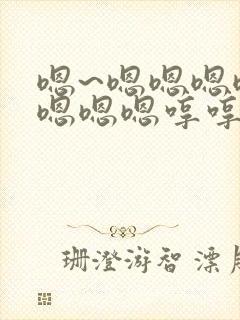 嗯~嗯嗯嗯
嗯嗯嗯哼哼
珊澄游智 漂